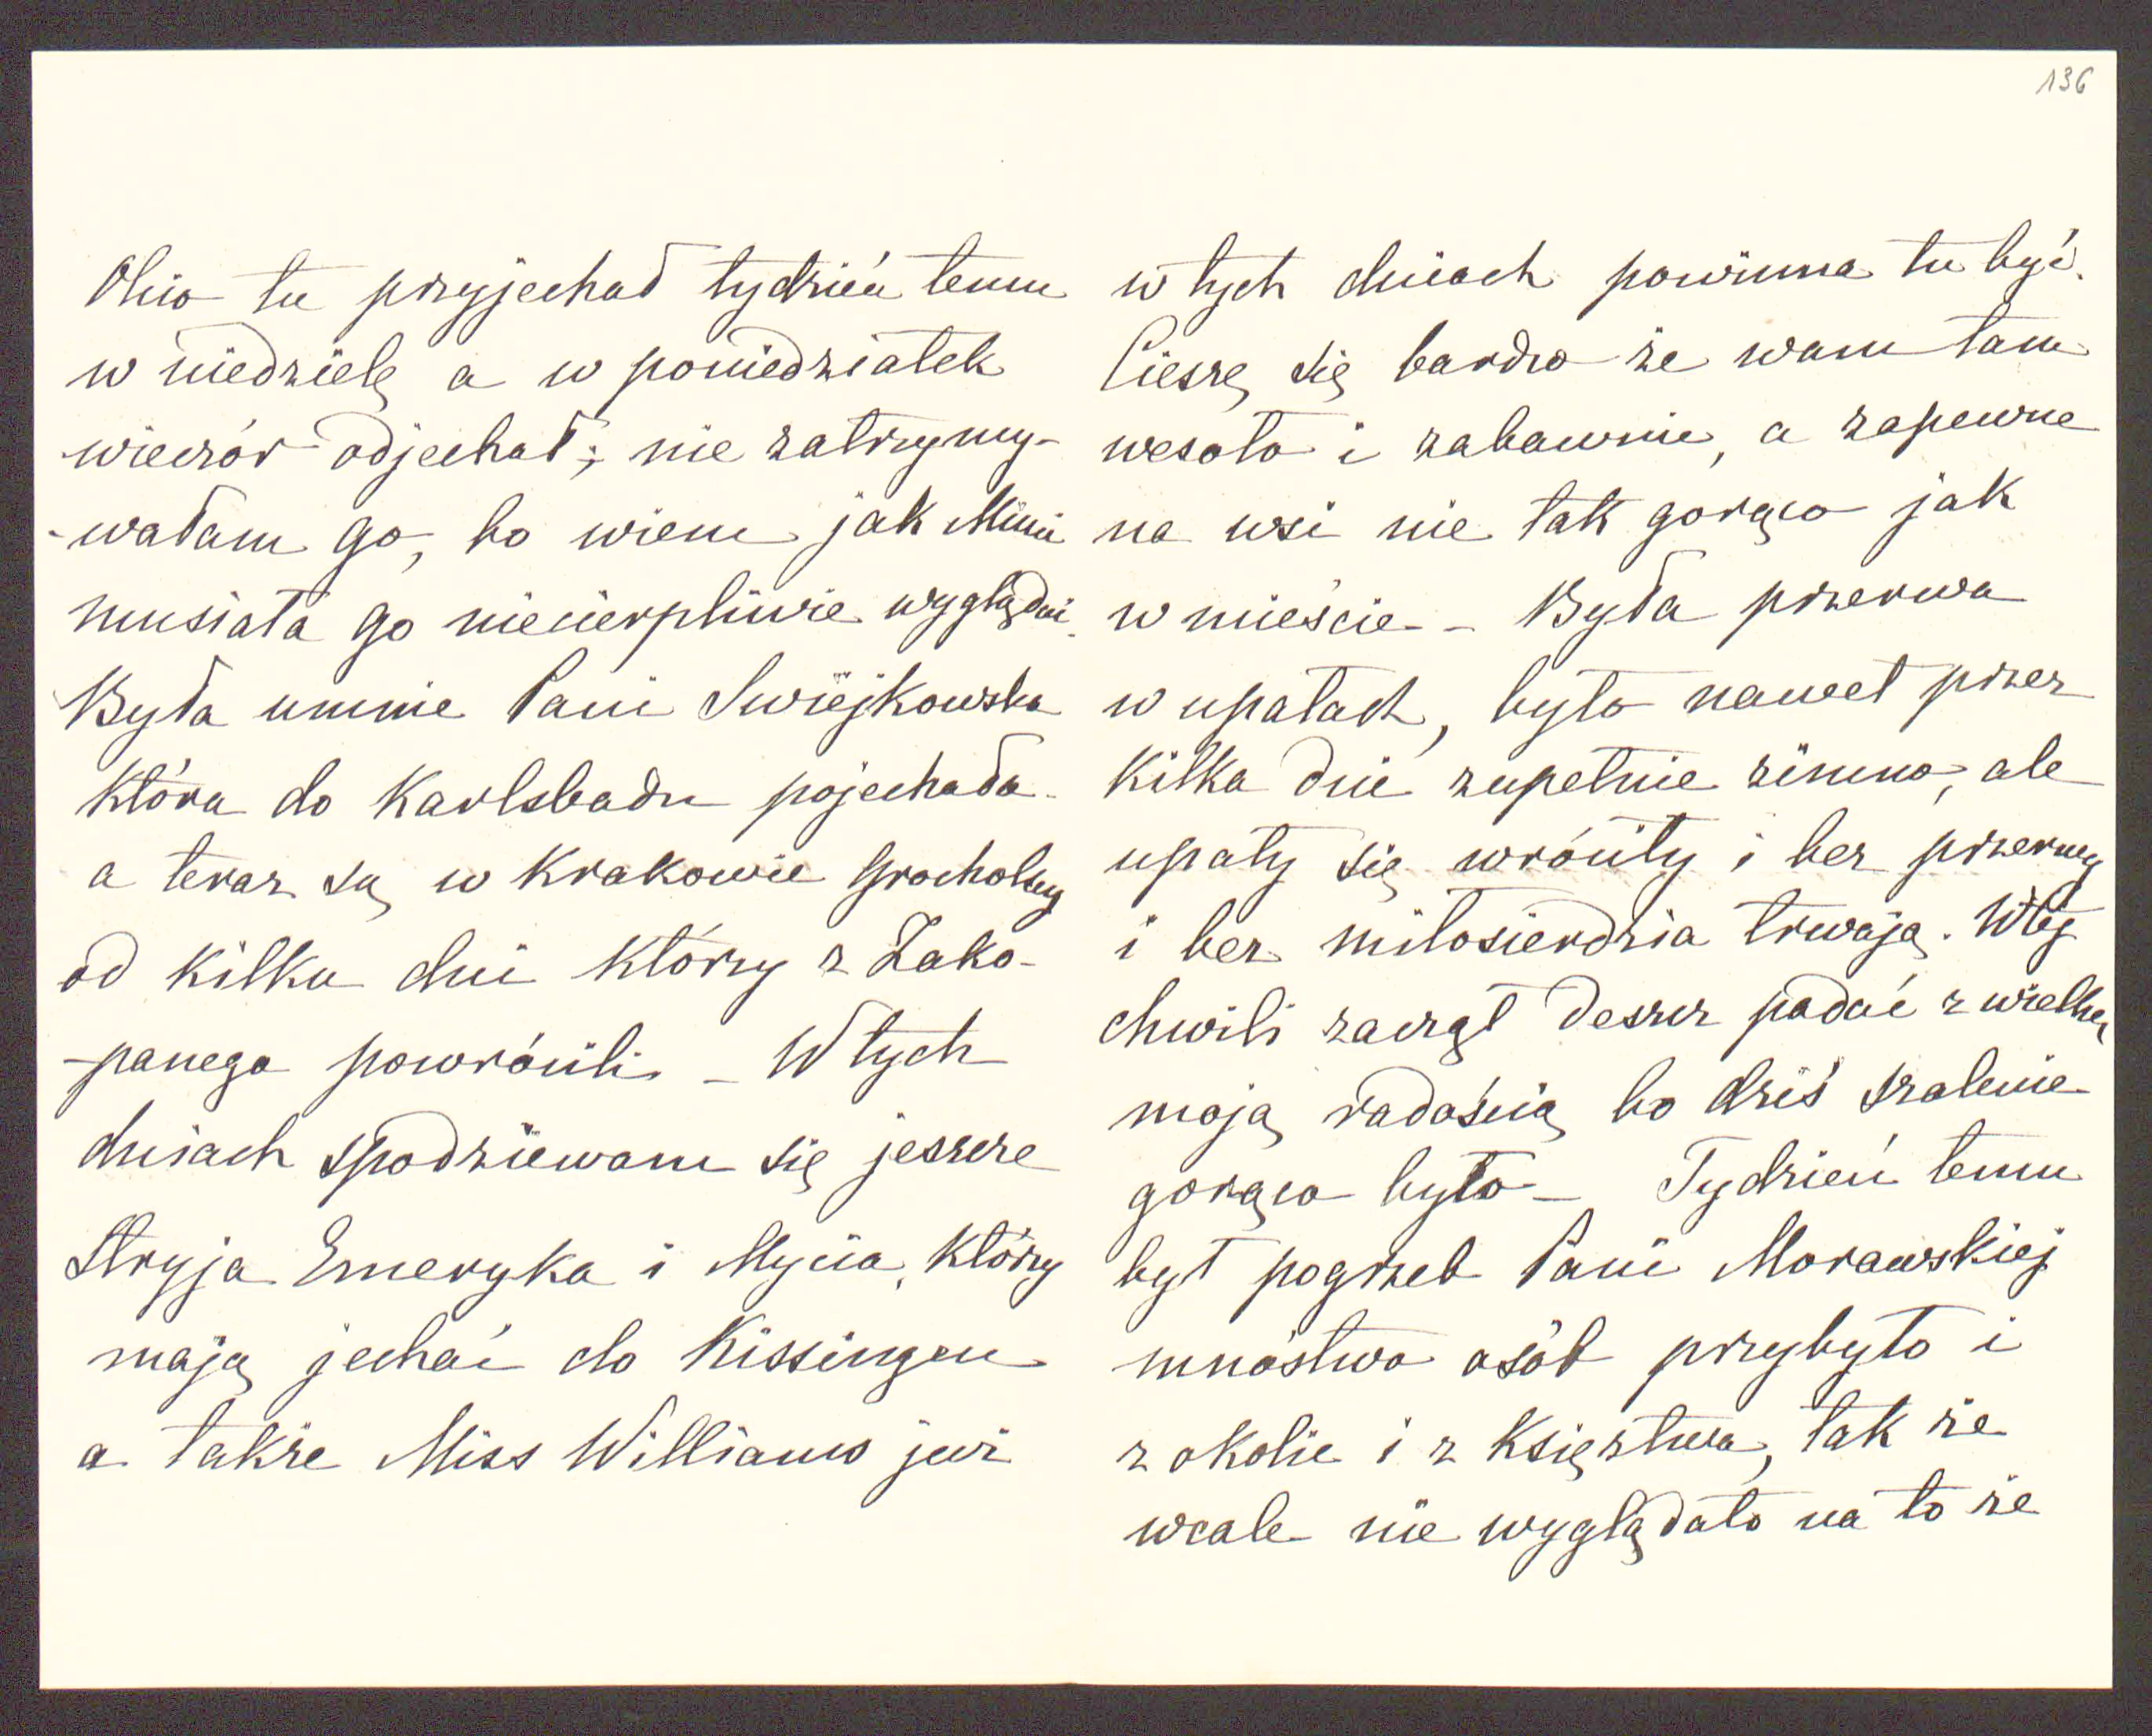 136
Olcio tu przyjechał tydzień temu
w niedzielę a w poniedziałek
wieczór odjechał; nie zatrzymy-
-wałam go, bo wiem jak Mimi
musiała go niecierpliwie wyglądać.
Była u mnie Pani Swiejkowska
która do Karlsbadu pojechała
a teraz są w Krakowie Grocholscy
od kilku dni którzy z Zako-
-panego powrócili – W tych
dniach spodziewam się jeszcze
Stryja Emeryka i Mycia, którzy
mają jechać do Kissingen
a także Miss Williams już
w tych dniach powinna tu być.
Cieszę się bardzo że wam tam
wesoło i zabawnie, a zapewne
na wsi nie tak gorąco jak
w mieście – Była przerwa
w upałach, było nawet przez
kilka dni zupełnie zimno, ale
upały się wróciły i bez przerwy
i bez miłosierdzia trwają. W tej
chwili zaczął deszcz padać z wielką
moją radością bo dziś szalenie
gorąco było – Tydzień temu
był pogrzeb Pani Morawskiej
mnóstwo osób przybyło i
z okolic i z Księztwa, tak że
wcale nie wyglądało na to że